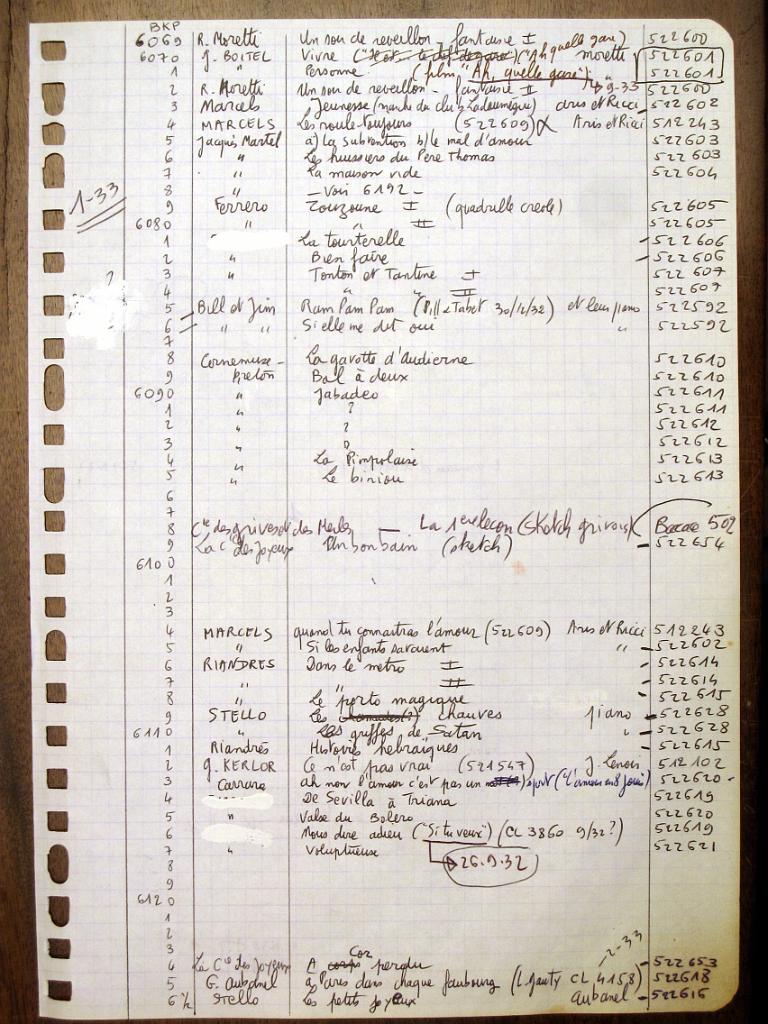 BKP
6069 R. Moretti Un soir de reveillon - fantaisie I 522600
6070 J. BOITEL Vivre ("Ah quelle gare) moretti 522601
1 Personne (film "Ah, quelle gare") 522601
2 R. Moretti Un soir de reveillon - fantaisie II 9-33 522600
3 Marcels Jeunesse (marche du club Ladoumègue) Aris et Ricci 522602
4 MARCELS Les roule toujours (522609) Aris et Ricci 512243
5 Jacques Martel a) La subvention b) le mal d'amour 522603
6 " Les huissiers du Pere Thomas 522603
7 " La maison vide 522604
8 " - Voir 6192 -
1-33
9 Ferrero Zouzoune I (quadrille creole) 522605
6080 " " II 522605
1 La tourterelle - 522606
2 " Bien faire - 522606
3 " Tonton et Tantine I 522607
?
4 " " II 522607
5 Bill et Jim Ram Pam Pam (Pill e Tabet 30/12/32) et leur piano 522592
6 " " Si elle me dit oui " 522592
7
8 Cornemuse - La gavotte d'Audierne 522610
9 Breton Bal à deux 522610
6090 " Jabadeo 522611
1 " ? 522611
2 " ? 522612
3 " ? 522612
4 " La Pimpolaise 522613
5 " Le biniou 522613
6
7
8 Cie des grives et des Merles - La 1ere lecon (sketch grivois) Bacae 502
9 La Cie des joyeux Un bon bain (sketch) - 522654
6100
1
2
3
4 MARCELS quand tu connaitras l'amour (522609) Aris et Ricci 512243
5 " Si les enfants savaient " - 522602
6 RIANDRES Dans le metro I - 522614
7 " " II - 522614
8 " Le porto magique - 522615
9 STELLO Les chauves piano - 522628
6110 " Les griffes de Satan " - 522628
1 Riandres Histoires hebraïques - 522615
2 J. KERLOR Ce n'est pas vrai (521547) J. Lenoir 512102
3 Carrara ah non l'amour c'est pas un sport ("L'amour en 8 jours) 522620 -
4 De Sevilla à Triana 522619
5 " Valse du Bolero 522620
6 Nous dire adieu ("Si tu veux") (CL 3860 9/32?) 522619
7 " Voluptueuse 522621
26.9.32
8
9
6120
1
2
3
-2-33
4 La Cie des Joyeux A Cor perdu - 522653
5 G. Aubanel à Paris dans chaque faubourg (L. Jauty CL 4158) 522618
6 1/2 Stello Les petits joyeux Aubanel - 522616